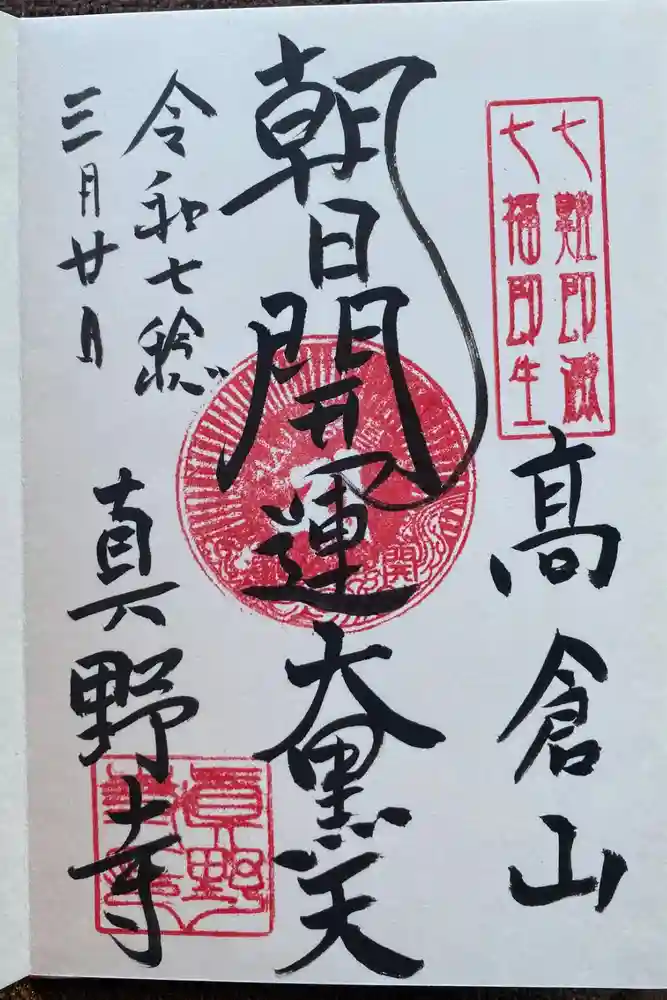 七難即滅
七福即生
高倉山
朝日開運大黒天
令和七年
三月廿日
真野寺
真野